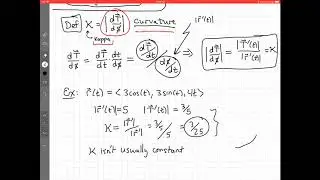 Def K = |dT⃗/ds| Curvature
Kappa
|r⃗'(t)|
dT⃗/ds = dT⃗/dt · dt/ds = (dT⃗/dt)/(ds/dt) ⇒ |dT⃗/ds| = |T⃗'(t)|/|r⃗'(t)| = K
Ex: r⃗(t) = <3cos(t), 3sin(t), 4t>
|r⃗'(t)| = 5 |T⃗'(t)| = 3/5
K = |T⃗'|/|r⃗'| = 3/5/5 = 3/25
K isn't usually constant